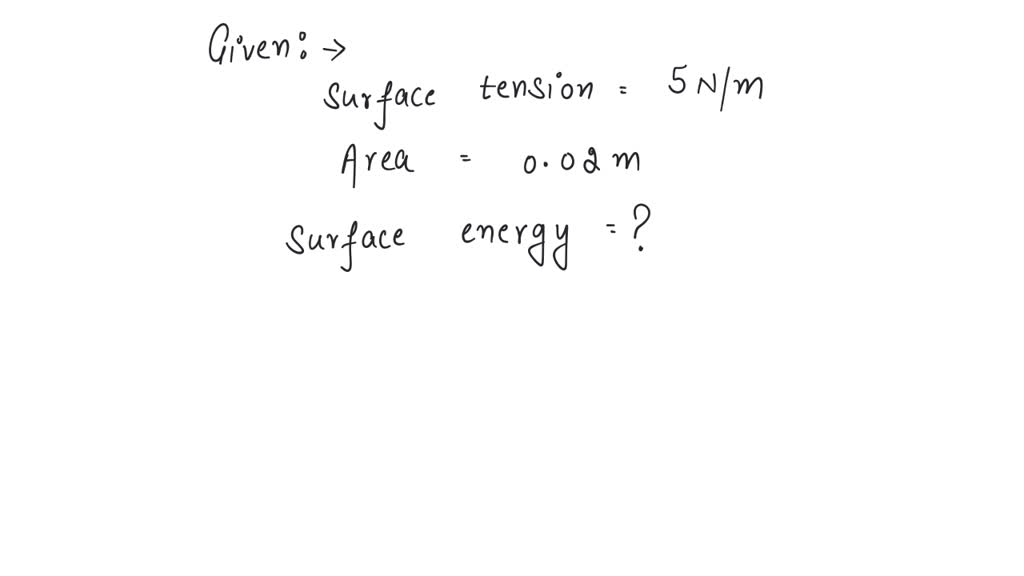 Given: →
Surface tension = 5 N/m
Area = 0.02 m
Surface energy = ?